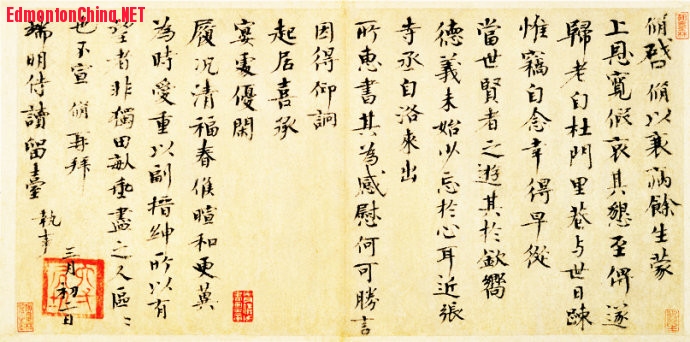 EdmontonChina.NET
脩啓脩以衰病餘生蒙
上恩寬假哀其懇至俾遂
歸老自杜門里巷与世日疎
惟竊自念幸得早從
當世賢者之遊其於欽嚮
德義未始少忘於心耳近張
寺丞自洛來出
所惠書其為感慰何可勝言
因得仰詗
起居喜承
宴處優閑
履况清福春候暄和更冀
為時愛重以副搢紳所以有
望者非獨田畝垂盡之人區〻
也不宣 脩再拜
端明侍讀留臺 執事
三月初二日